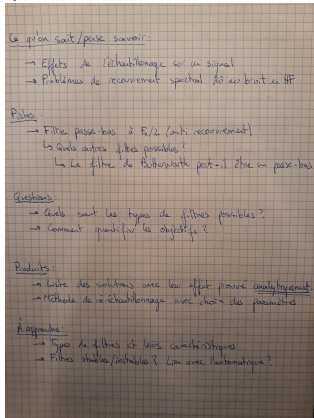 Ce qu'on sait/pense savoir :
→ Effets de l'échantillonage sur un signal
→ Problèmes de recouvrement spectral dû au bruit en HF
Pistes
→ Filtre passe-bas à Fe/2 (anti recouvrement)
↳ Quels autres filtres possibles ?
↳ Le filtre de Butterworth peut-il être un passe-bas
Questions
→ Quels sont les types de filtres possibles ?
→ Comment quantifier les objectifs ?
Produits :
→ Liste des solutions avec leur effet prouvé analytiquement
→ Méthode de ré-échantillonnage avec choix des paramètres
À apprendre :
→ Types de filtres et leurs caractéristiques
→ Filtres stables/instables ? Lien avec l'automatique ?